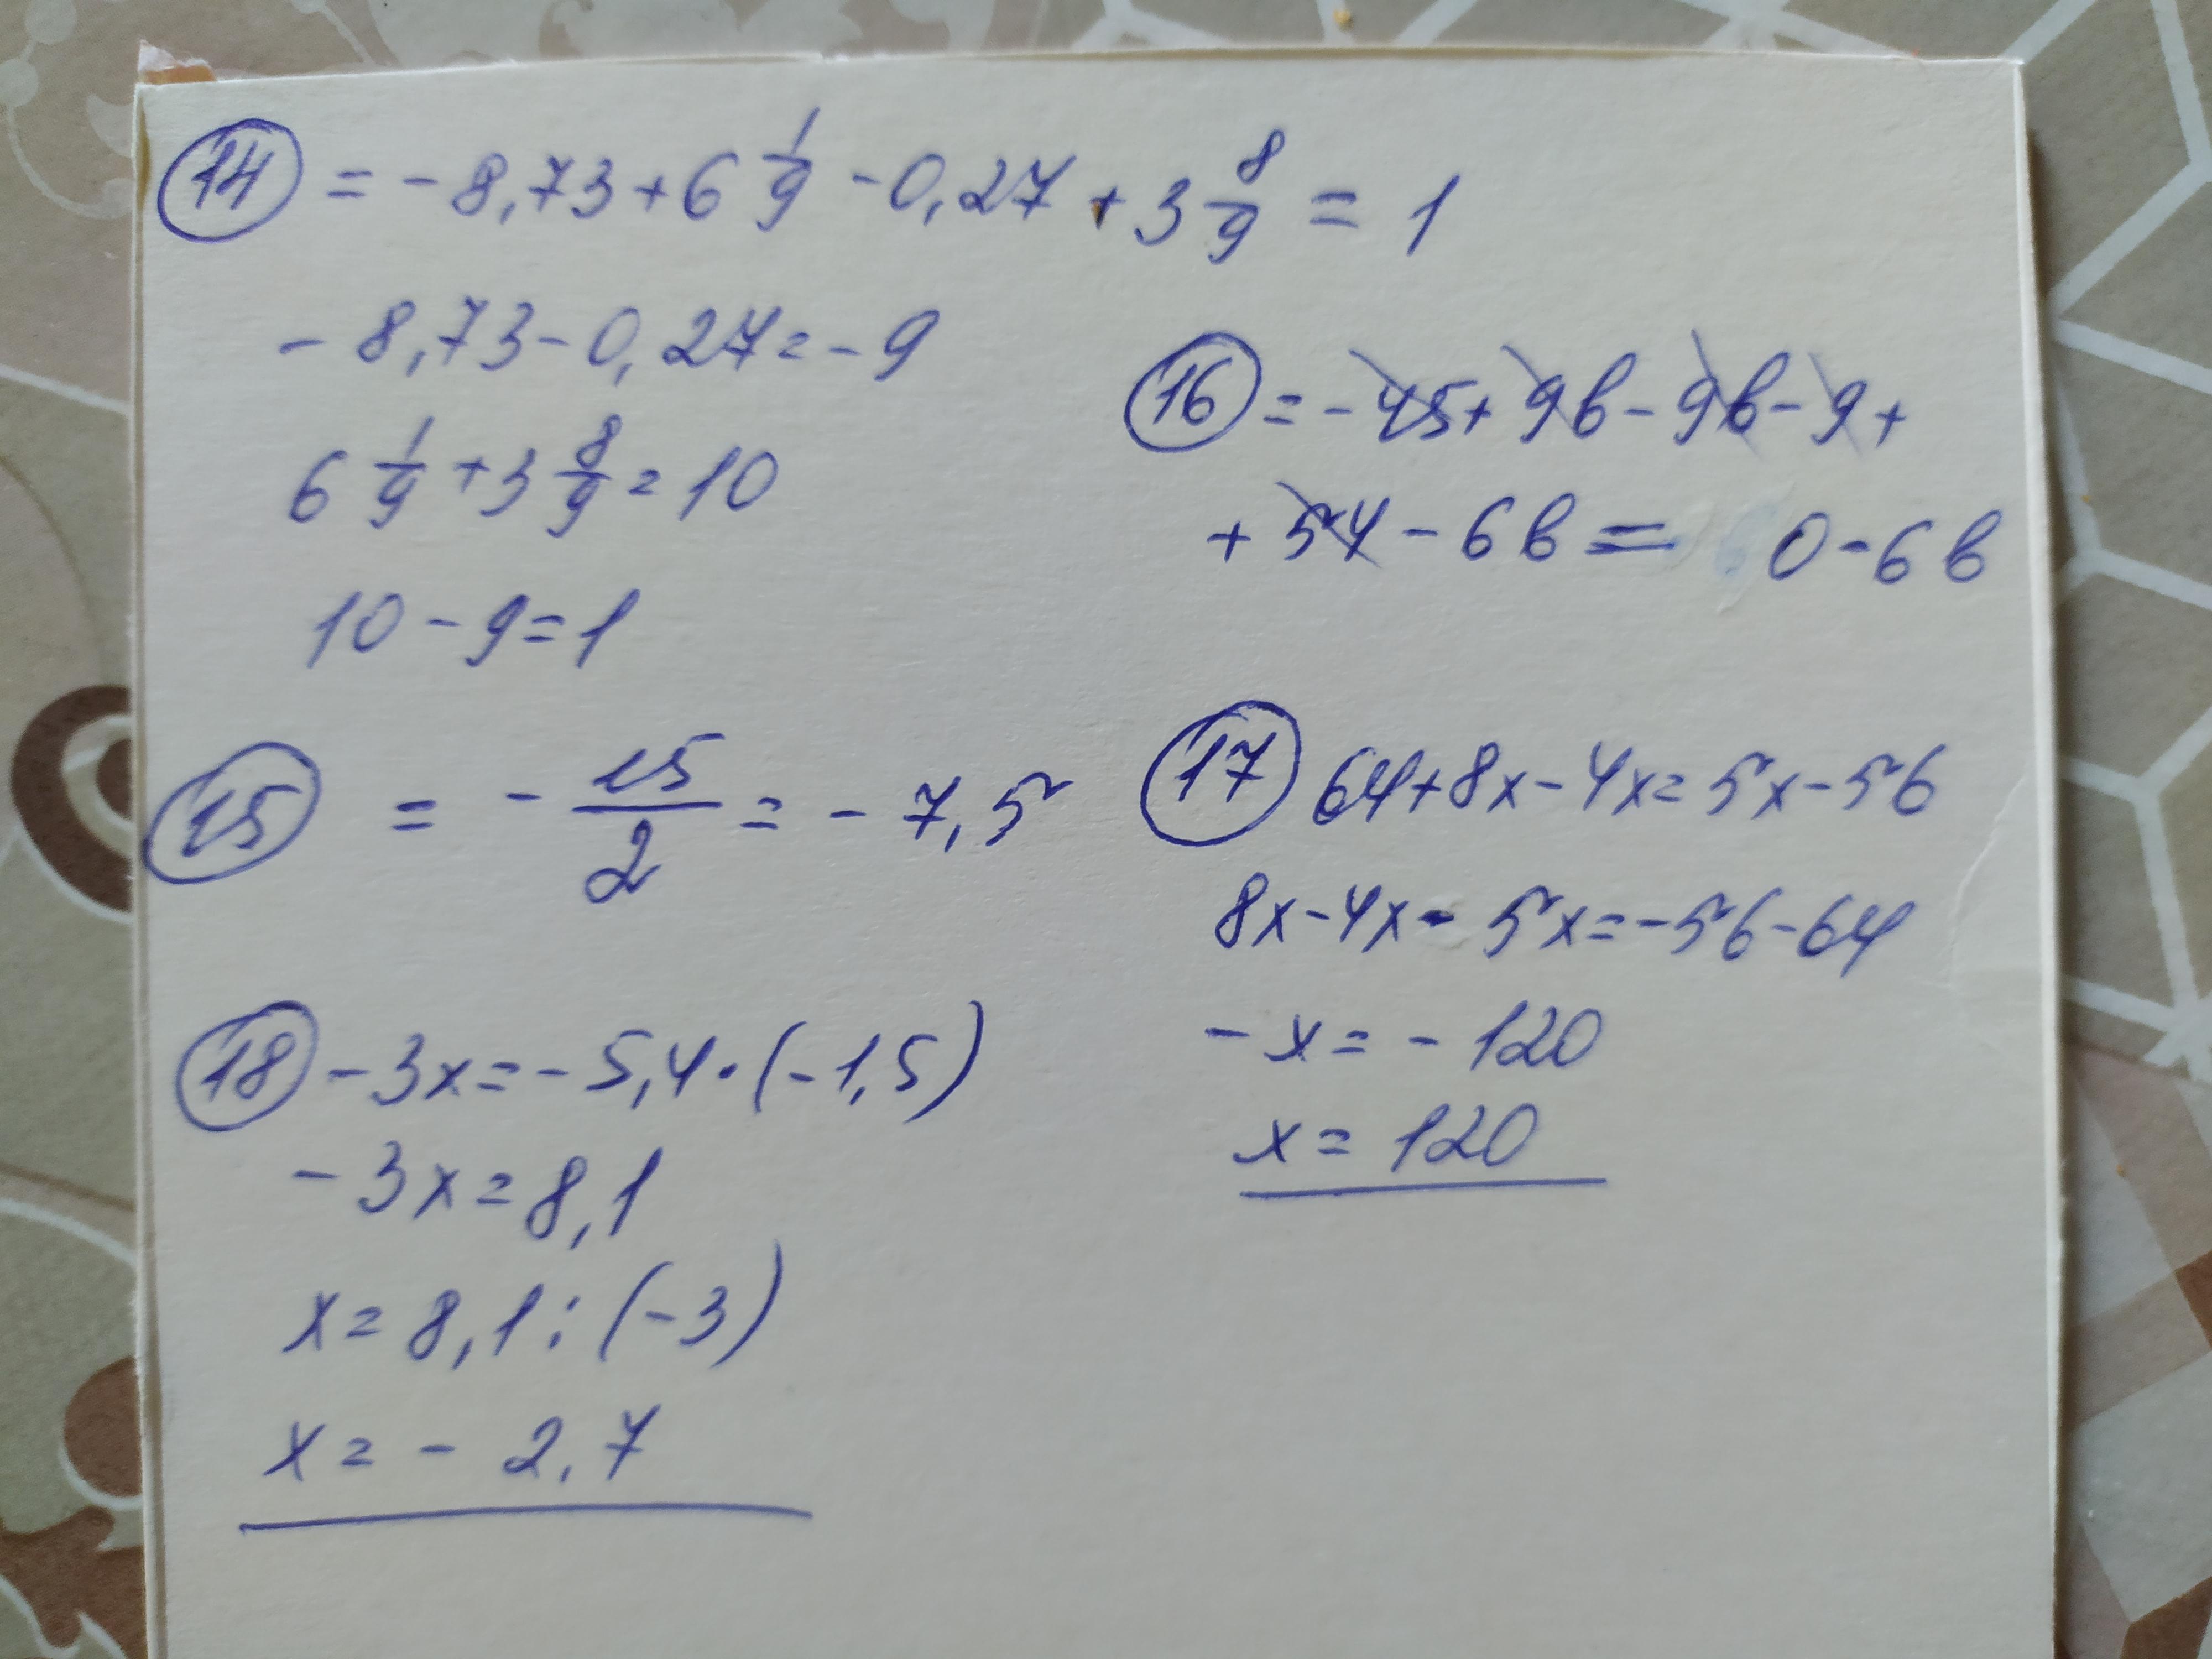 14 = -8,73+6 1/9 -0,27 + 3 8/9 = 1
-8,73-0,27=-9
6 1/9 +3 8/9 = 10
10-9=1
15 = - 15/2 = -7,5
18 -3x=-5,4·(-1,5)
-3x=8,1
x=8,1:(-3)
x=-2,7
16 =-45+9b-9b-9+
+54-6b= 0-6b
17 64+8x-4x=5x-56
8x-4x-5x=-56-64
-x=-120
x=120